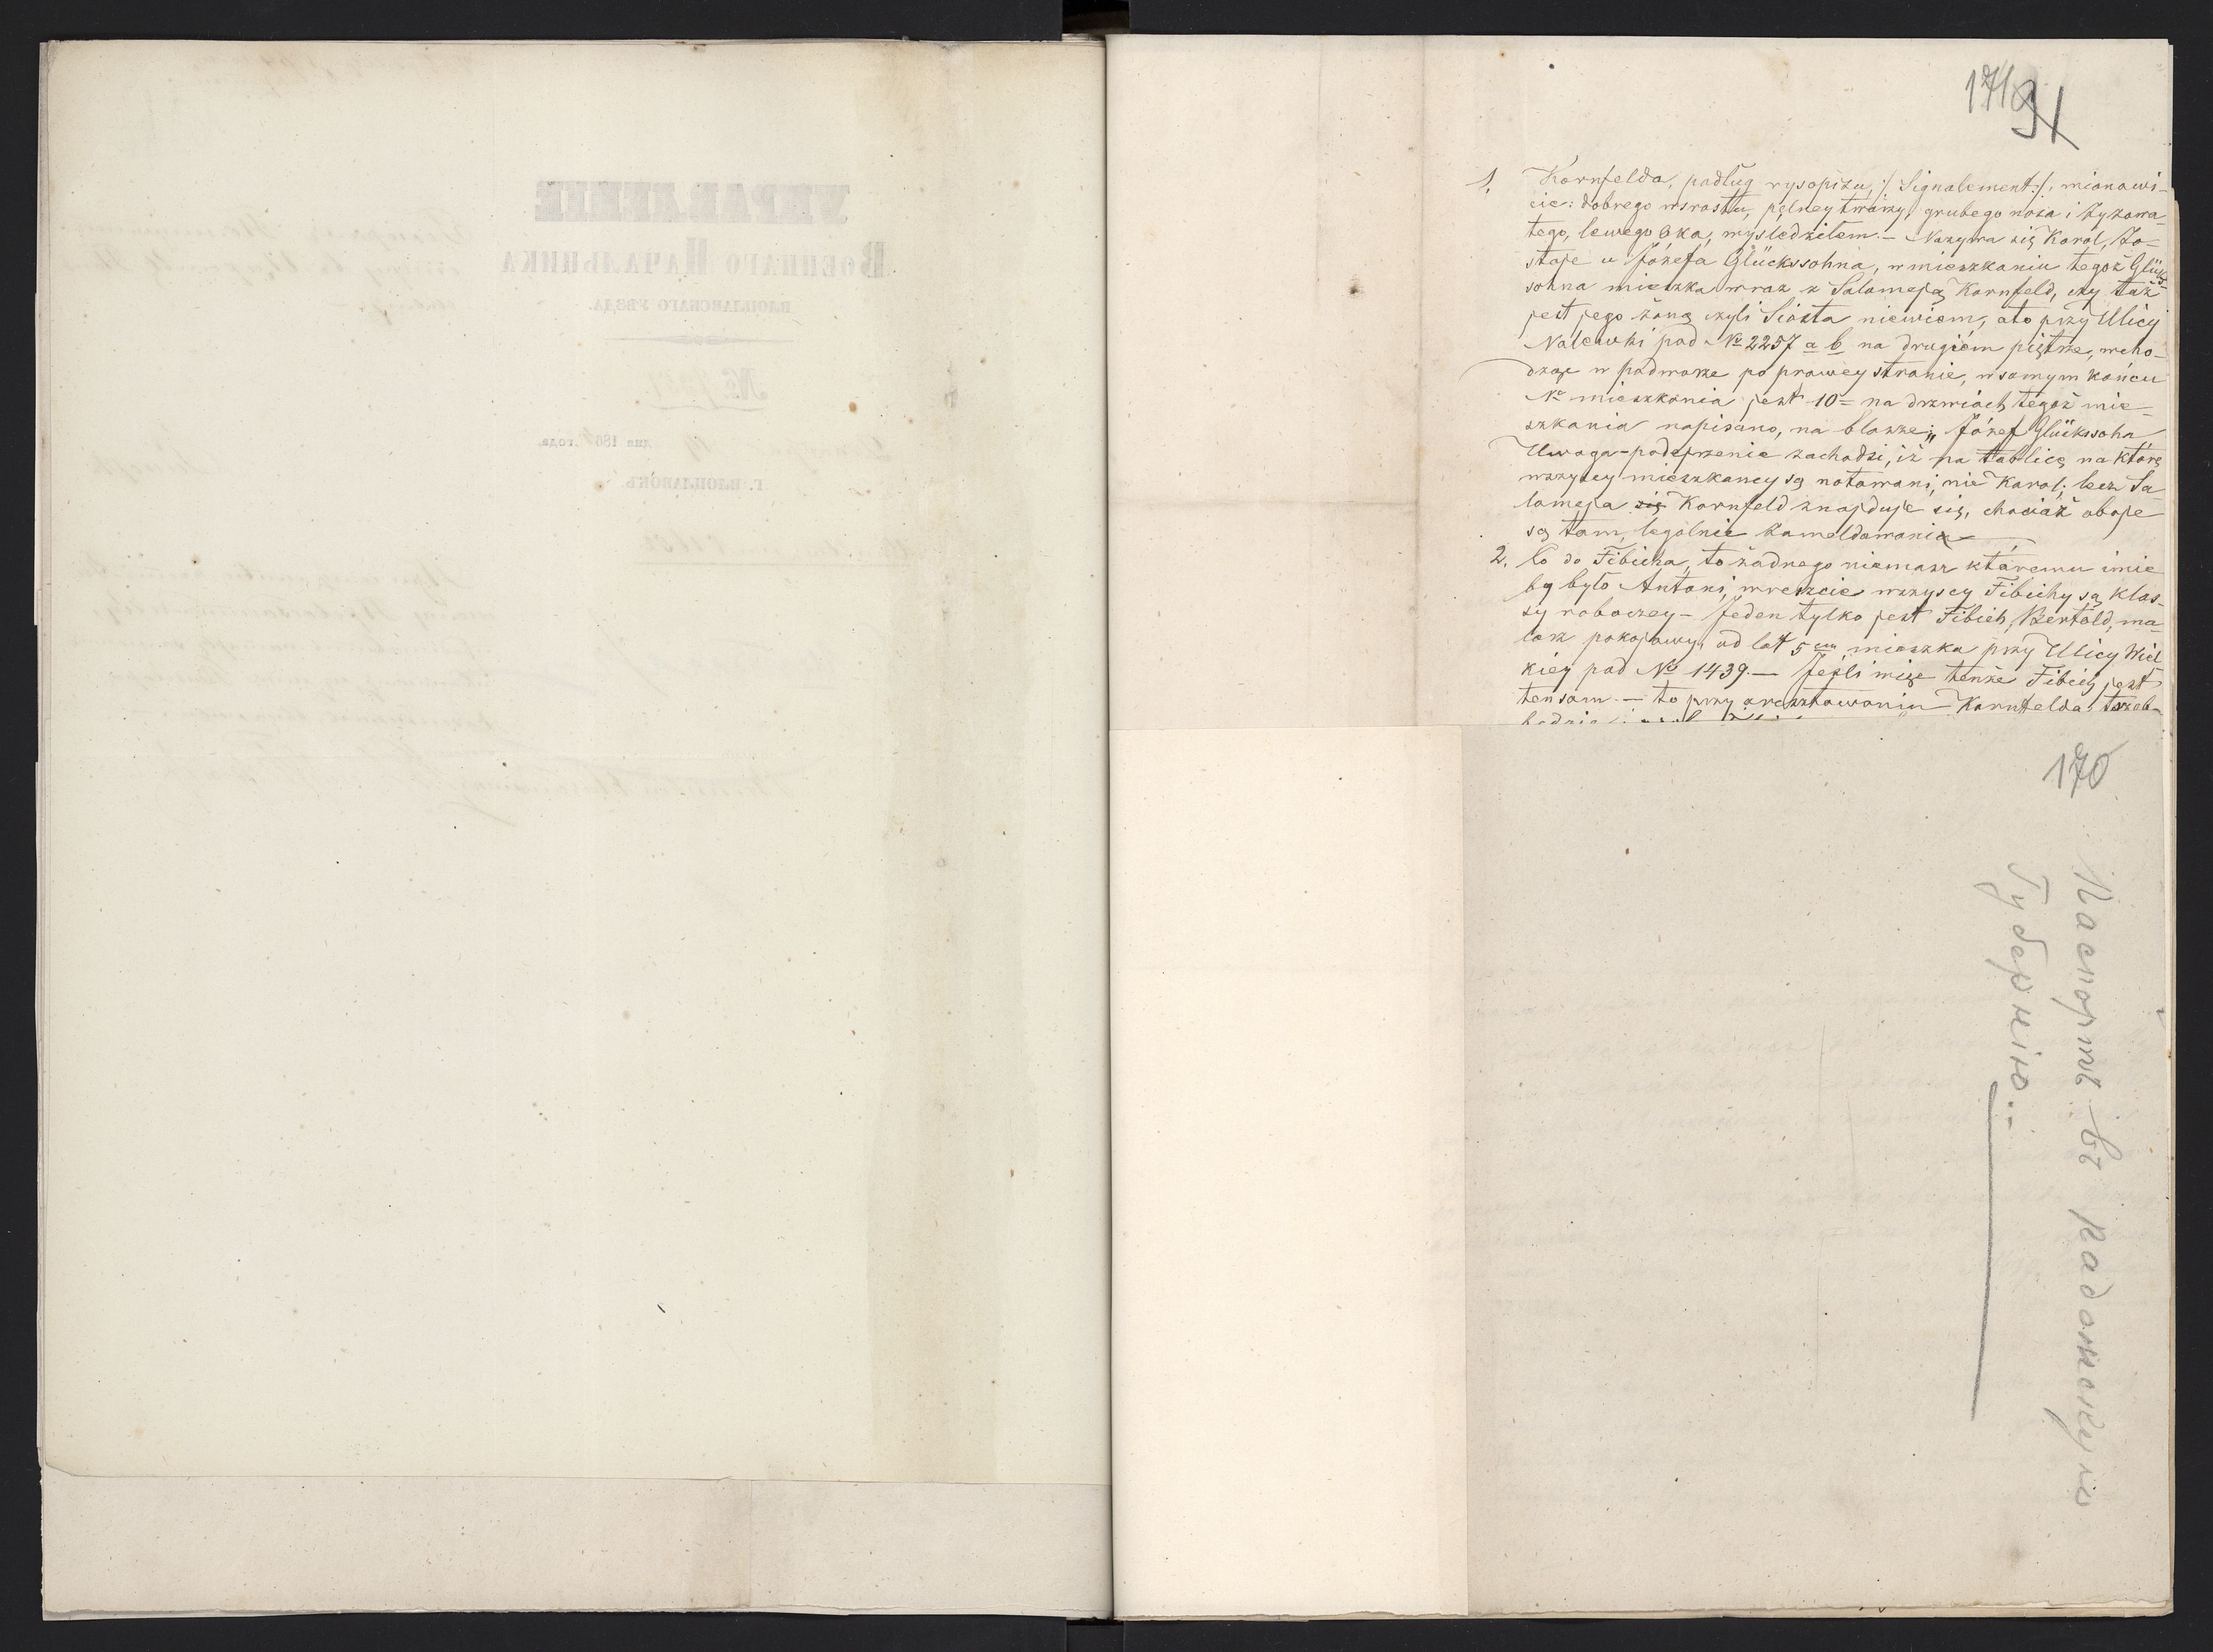 УПРАВЛЕНІЕ
ВОЕННАГО НАЧАЛЬНИКА
ВЛОЦЛАВСКАГО УѢЗДА.
№
дня 186 года.
Г. ВЛОЦЛАВОКЪ.
171
91
1. Kornfelda, podług rysopisu, /: Signalement :/, mianowi-
cie: dobrego wsrostu, pełney twarzy, grubego nosa i zyzowa-
tego, lewego oka, wysledziłem. — Nazywa się Karol, Zo-
staje u Józefa Glückssohna, w mieszkaniu tegoż Glücks-
sohna mieszka wraz z Salomeją Kornfeld, czy taż
jest jego żoną czyli Siostą niewiem, a to przy Ulicy
Nalewki pod № 2257 a b na drugiém piętrze, wcho-
dząc w podwórze po prawey stronie, w samym końcu
№ mieszkania jest 10 = na drzwiach tegoż mie-
szkania napisano, na blasze: „Józef Glückssohn
Uwaga - podejrzenie zachodzi, iż na tablicę na którę
wszyscy mieszkancy są notowani, nie Karol, lecz Sa-
lomeja się Kornfeld znajduje się, chociaż oboje
są tam, legalnie zameldowani
2. Co do Fibicha, to żadnego niemasz któremu imie
by było Antoni, wreszcie wszyscy Fibichy są klas-
sy roboczey — Jeden tylko jest Fibich, Bertold, ma-
larz pokojowy, od lat 5 ciu mieszka przy Ulicy Wiel-
kiey pod № 1439. — Jeżli więc tenże Fibich jest
tensam. — to przy aresztowaniu Kornfelda, trzeb-
170
Паспортъ въ Радомскую
Губернію.